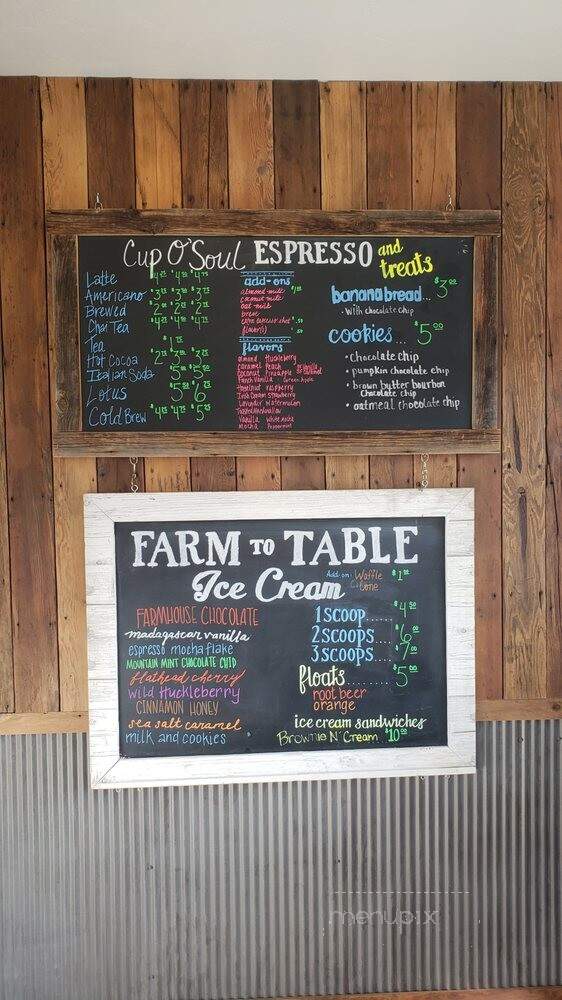 Cup O'Soul ESPRESSO and treats
Latte
Americano
Brewed
Chai Tea
Tea
Hot Cocoa
Italian Soda
Lotus
Cold Brew
add-ons
almond milk
coconut milk
oat milk
extra espresso shot
flavor(s)
flavors
almond Huckleberry
caramel Peach
coconut Pineapple
French Vanilla Green Apple
Hazelnut raspberry
Irish Cream Strawberry
Lavender Watermelon
Toasted Marshmallow
Vanilla White Mocha
Mocha Peppermint
banana bread... $3.00
- With chocolate chip
cookies... $5.00
• chocolate chip
• pumpkin chocolate chip
• brown butter bourbon
chocolate chip
• oatmeal chocolate chip
FARM TO TABLE
Ice Cream
Add-on: Waffle Cone $1.00
FARMHOUSE CHOCOLATE
madagascar vanilla
espresso mocha flake
MOUNTAIN MINT CHOCOLATE CHIP
flathead cherry
wild Huckleberry
CINNAMON HONEY
sea salt caramel
milk and cookies
1 scoop...... $4.50
2 scoops.... $6.00
3 scoops.... $7.00
floats......... $5.00
root beer
orange
ice cream sandwiches
Brownie N' Cream $10.00
menupix